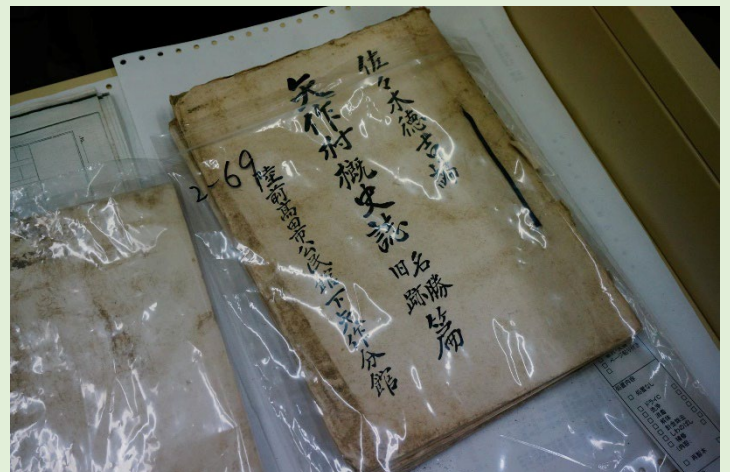 佐々木徳吉編
矢作村概史誌 名勝旧跡篇
陸前高田市公民館下矢作分館
2-69